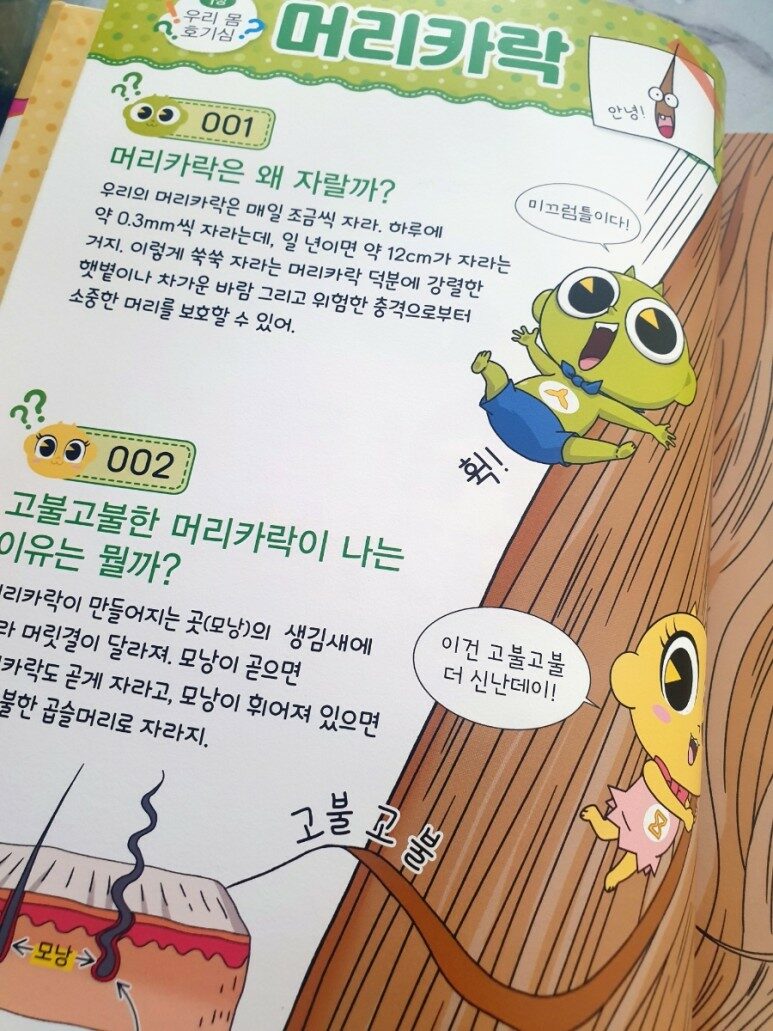 우리 몸
호기심
머리카락
안녕!
001
머리카락은 왜 자랄까?
우리의 머리카락은 매일 조금씩 자라. 하루에
약 0.3mm씩 자라는데, 일 년이면 약 12cm가 자라는
거지. 이렇게 쑥쑥 자라는 머리카락 덕분에 강렬한
햇볕이나 차가운 바람 그리고 위험한 충격으로부터
소중한 머리를 보호할 수 있어.
미끄럼틀이다!
휙!
002
고불고불한 머리카락이 나는
이유는 뭘까?
머리카락이 만들어지는 곳(모낭)의 생김새에
머릿결이 달라져. 모낭이 곧으면
곧게 자라고, 모낭이 휘어져 있으면
곱슬머리로 자라지.
이건 고불고불
더 신난데이!
고불고불
모낭